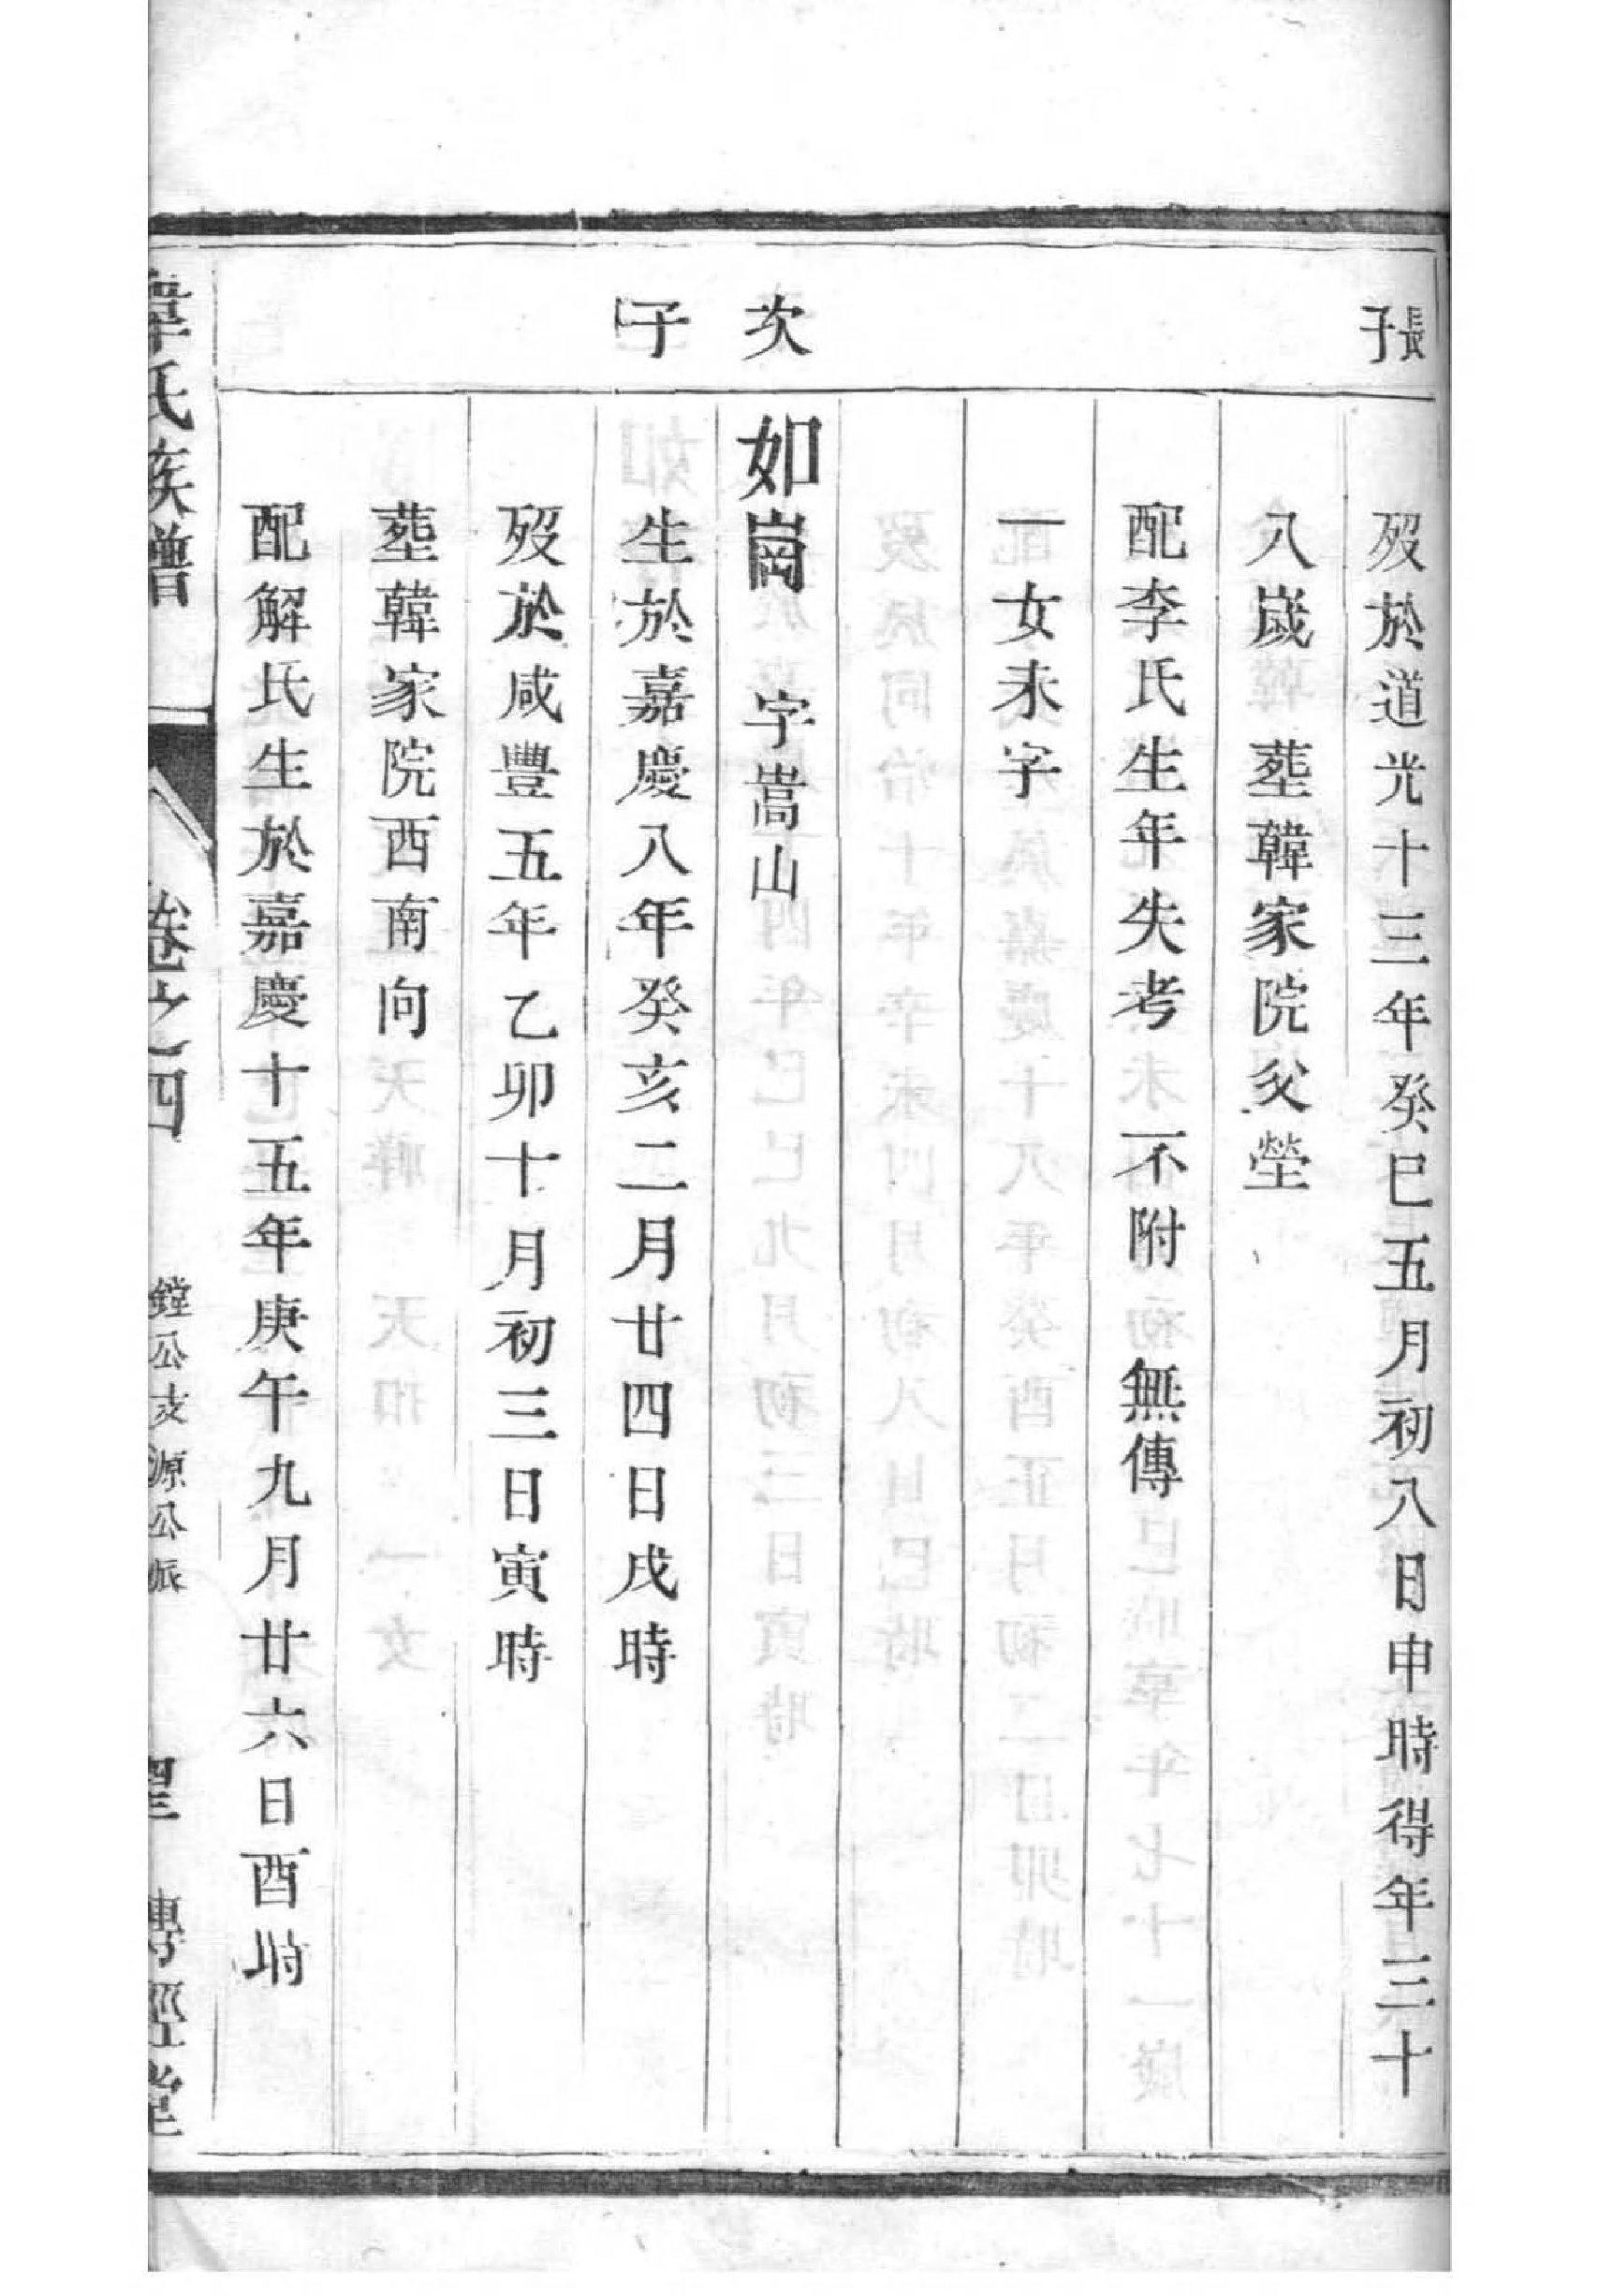 長子
歿於道光十三年癸巳五月初八日申時得年三十
八嵗　葬韓家院父塋
配李氏生年失考　不附　無傳
一女未字
次子
如崗　字嵩山
生於嘉慶八年癸亥二月廿四日戌時
歿於咸豐五年乙卯十月初三日寅時
葬韓家院西南向
配解氏生於嘉慶十五年庚午九月廿六日酉時
韋氏族譜　卷之四　鏜公支源公派　傳經堂